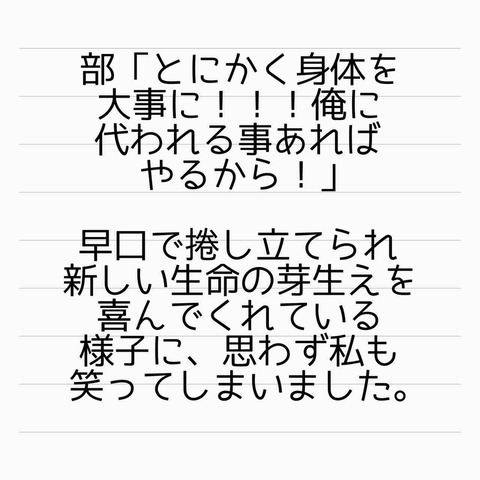 部「とにかく身体を
大事に！！！俺に
代われる事あれば
やるから！」
早口で捲し立てられ
新しい生命の芽生えを
喜んでくれている
様子に、思わず私も
笑ってしまいました。